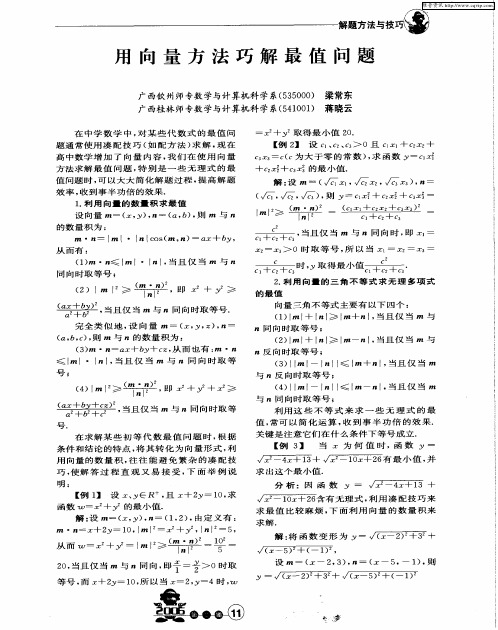 维普资讯 http://www.cqvip.com
解题方法与技巧
用向量方法巧解最值问题
广西钦州师专数学与计算机科学系(535000) 梁常东
广西桂林师专数学与计算机科学系(541001) 蒋晓云
在中学数学中,对某些代数式的最值问
题通常使用凑配技巧(如配方法)求解,现在
高中数学增加了向量内容,我们在使用向量
方法求解最值问题,特别是一些无理式的最
值问题时,可以大大简化解题过程,提高解题
效率,收到事半功倍的效果.
1.利用向量的数量积求最值
设向量 m=(x,y),n=(a,b),则 m 与 n
的数量积为:
m·n=|m|·|n|cos(m,n)=ax+by,
从而有:
(1)m·n≤|m|·|n|,当且仅当 m 与 n
同向时取等号;
(2)|m|²≥(m·n)²/|n|²,即 x²+y²≥
(ax+by)²/(a²+b²),当且仅当 m 与 n 同向时取等号.
完全类似地,设向量 m=(x,y,z),n=
(a,b,c),则 m 与 n 的数量积为:
(3)m·n=ax+by+cz,从而也有:m·n
≤|m|·|n|,当且仅当 m 与 n 同向时取等
号;
(4)|m|²≥(m·n)²/|n|²,即 x²+y²+z²≥
(ax+by+cz)²/(a²+b²+c²),当且仅当 m 与 n 同向时取等
号.
在求解某些初等代数最值问题时,根据
条件和结论的特点,将其转化为向量形式,利
用向量的数量积,往往能避免繁杂的凑配技
巧,使解答过程直观又易接受,下面举例说
明:
【例1】 设 x,y∈R⁺,且 x+2y=10,求
函数 w=x²+y² 的最小值.
解:设 m=(x,y),n=(1,2),由定义有:
m·n=x+2y=10,|m|²=x²+y²,|n|²=5,
从而 w=x²+y²=|m|²≥(m·n)²/|n|²=10²/5=
20,当且仅当 m 与 n 同向,即 x/1=y/2>0 时取
等号,而 x+2y=10,所以当 x=2,y=4 时,w
=x²+y² 取得最小值 20.
【例2】 设 c₁、c₂、c₃>0 且 c₁x₁+c₂x₂+
c₃x₃=c(c 为大于零的常数),求函数 y=c₁x₁²
+c₂x₂²+c₃x₃² 的最小值.
解:设 m=(√c₁x₁,√c₂x₂,√c₃x₃),n=
(√c₁,√c₂,√c₃),则 y=c₁x₁²+c₂x₂²+c₃x₃²=
|m|²≥(m·n)²/|n|²=(c₁x₁+c₂x₂+c₃x₃)²/(c₁+c₂+c₃)=
c²/(c₁+c₂+c₃),当且仅当 m 与 n 同向时,即 x₁=
x₂=x₃>0 时取等号,所以当 x₁=x₂=x₃=
c/(c₁+c₂+c₃)时,y 取得最小值 c²/(c₁+c₂+c₃).
2.利用向量的三角不等式求无理多项式
的最值
向量三角不等式主要有以下四个:
(1)|m|+|n|≥|m+n|,当且仅当 m 与
n 同向时取等号;
(2)|m|+|n|≥|m-n|,当且仅当 m 与
n 反向时取等号;
(3)||m|-|n||≤|m+n|,当且仅当 m
与 n 反向时取等号;
(4)||m|-|n||≤|m-n|,当且仅当 m
与 n 同向时取等号;
利用这些不等式来求一些无理式的最
值,常可以简化运算,收到事半功倍的效果.
关键是注意它们在什么条件下等号成立.
【例3】 当 x 为何值时,函数 y=
√(x²-4x+13)+√(x²-10x+26) 有最小值,并
求出这个最小值.
分析:因函数 y=√(x²-4x+13)+
√(x²-10x+26)含有无理式,利用凑配技巧来
求最值比较麻烦,下面利用向量的数量积来
求解.
解:将函数变形为 y=√((x-2)²+3²)+
√((x-5)²+(-1)²),
设 m=(x-2,3),n=(x-5,-1),则
y=√((x-2)²+3²)+√((x-5)²+(-1)²)
2006
11